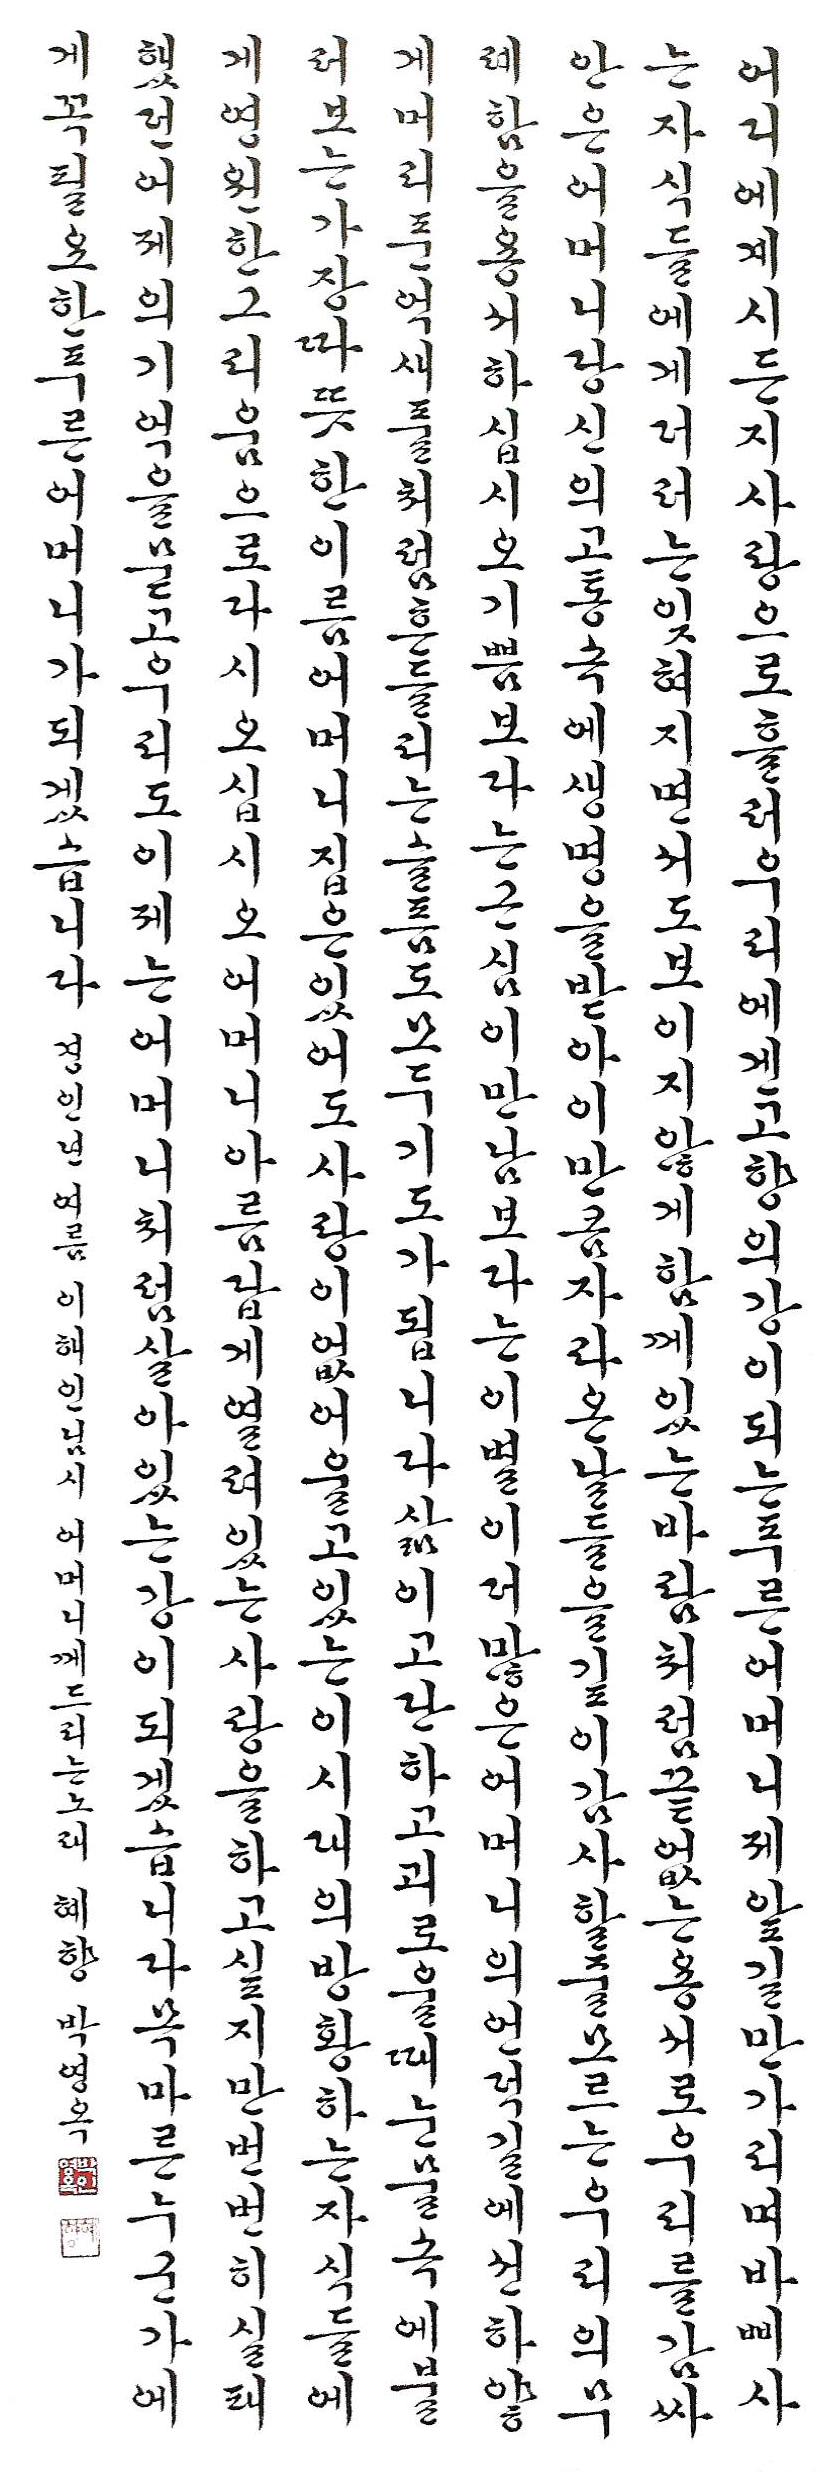 어리에계시든지사랑으로흘러우리에겐고향의강이되는푸른어머니제앞길만가리며바삐사
는자식들에게더러는잊혀지면서도보이지않게함께있는바람처럼끝없는용서로우리를감싸
안은어머니당신의고통속에생명을받아이만큼자라온날들을깊이감사할줄모르는우리의무
례함을용서하십시오기쁨보다는근심이만남보다는이별이더많은어머니의언덕길에선하얗
게머리푼억새풀처럼흔들리는슬픔도모두기도가됩니다삶이고단하고괴로울때눈물속에불
러보는가장따뜻한이름어머니집은있어도사랑이없어울고있는이시대의방황하는자식들에
게영원한그리움으로다시오십시오어머니아름답게열려있는사랑을하고싶지만번번히실패
했던어제의기억을묻고우리도이제는어머니처럼살아있는강이되겠습니다목마른누군가에
게꼭필요한푸른어머니가되겠습니다 정인년 여름 이해인님시 어머니께드리는노래 혜향 박영옥